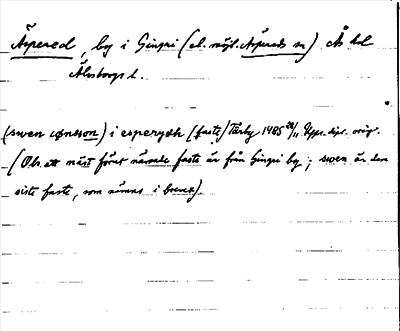 Äspered, by i Gingri (el. möjl. Äspereds sn) Ås hd
Älvsborgs l.
(swen cønsson) i esperydh (faste) Tärby 1485 28/11 Upps. dipl. orig.
(Obs. att näst förut nämnde faste är från Gingri by; swen är den
siste faste, som nämns i brevet).